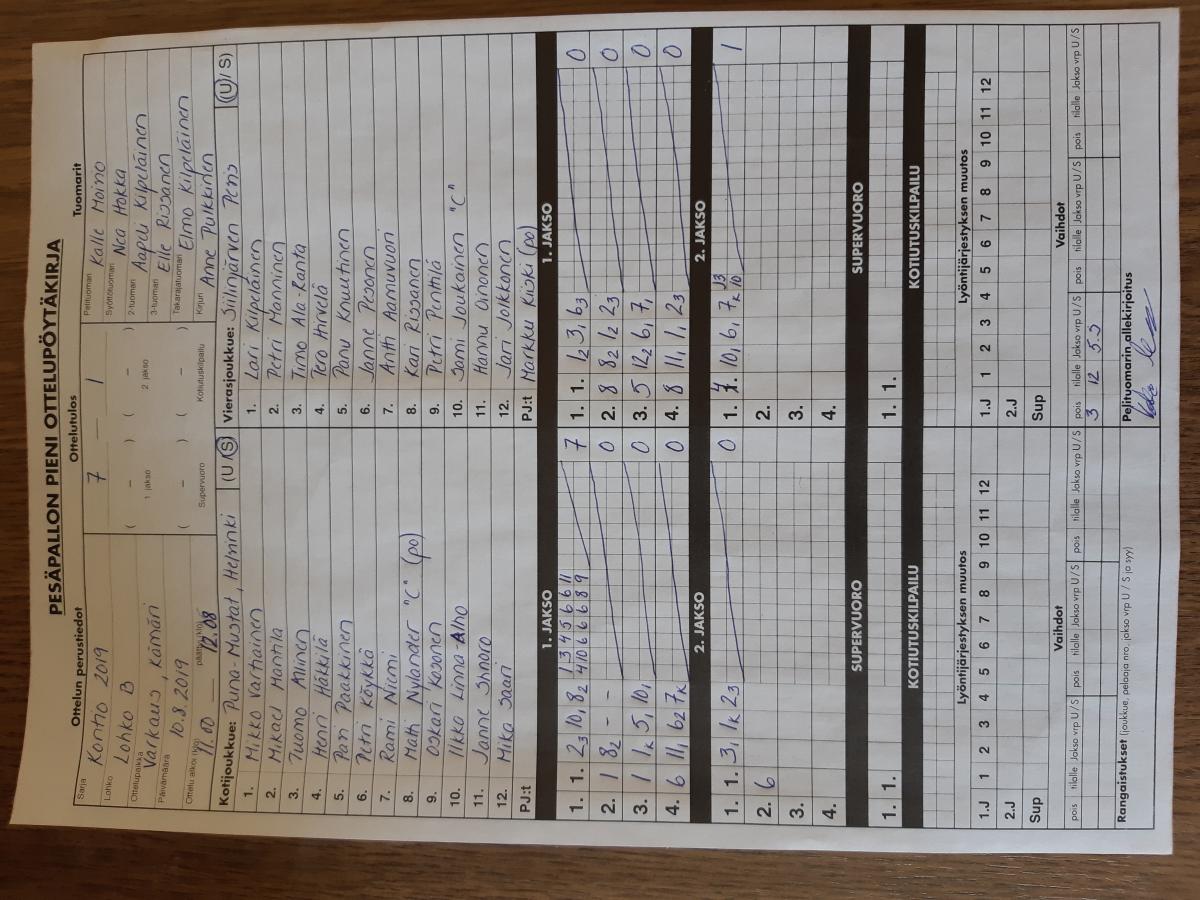 PESÄPALLON PIENI OTTELUPÖYTÄKIRJA
Ottelun perustiedot Ottelutulos Tuomarit
Sarja Kontio 2019
Lohko Lohko B
Ottelupaikka Varkaus, Kämäri
Päivämäärä 10.8.2019
Ottelu alkoi (klo) 11.00 päättyi (klo) 12.08
7 — 1
( – ) ( – )
1 jakso 2 jakso
( – ) ( – )
Supervuoro Kotiutuskilpailu
Pelituomari Kalle Moino
Syöttötuomari Nea Hokka
2-tuomari Aapeli Kilpeläinen
3-tuomari Elle Rissanen
Takarajatuomari Elmo Kilpeläinen
Kirjuri Anne Pulkkinen
Kotijoukkue: Puna-Mustat, Helsinki (U/S)
1. Mikko Vartiainen
2. Mikael Mantila
3. Tuomo Alinen
4. Henri Häkkilä
5. Pasi Paakkinen
6. Petri Köykkä
7. Rami Niemi
8. Matti Nylander "C" (po)
9. Oskari Kosonen
10. Ilkka Linna-Alho
11. Janne Shnoro
12. Mika Saari
PJ:t
Vierasjoukkue: Siilinjärven Pesis (U/S)
1. Lari Kilpeläinen
2. Petri Manninen
3. Timo Ala-Ranta
4. Tero Hirvelä
5. Panu Knuutinen
6. Janne Pesonen
7. Antti Aamuvuori
8. Kari Rissanen
9. Petri Penttilä
10. Sami Joukainen "C"
11. Hannu Oinonen
12. Jari Jolkkonen
PJ:t Markku Kiiski (po)
1. JAKSO 1. JAKSO
1. 1. 2₃ 10₁ 8₂ 1 3 4 5 6 6 11 7
4 10 6 6 6 8 9
2. 1 8₂ - - 0
3. 1 1ₖ 5₁ 10₁ 0
4. 6 11₁ 6₂ 7ₖ 0
1. 1. 1₂ 3₁ 6₃ 0
2. 8 8₂ 1₂ 2₃ 0
3. 5 12₂ 6₁ 7₁ 0
4. 8 11₁ 1₁ 2₃ 0
2. JAKSO 2. JAKSO
1. 1. 3₁ 1ₖ 2₃ 0
2. 6
3.
4.
1. 4 10₁ 6₁ 7ₖ 13 1
10
2.
3.
4.
SUPERVUORO SUPERVUORO
1. 1. 1. 1.
KOTIUTUSKILPAILU KOTIUTUSKILPAILU
Lyöntijärjestyksen muutos Lyöntijärjestyksen muutos
1.J 1 2 3 4 5 6 7 8 9 10 11 12 1.J 1 2 3 4 5 6 7 8 9 10 11 12
2.J 2.J
Sup Sup
Vaihdot Vaihdot
pois tilalle Jakso vrp U / S pois tilalle Jakso vrp U / S pois tilalle Jakso vrp U / S pois tilalle Jakso vrp U / S pois tilalle Jakso vrp U / S
3 12 5.5
Rangaistukset (joukkue, pelaaja nro, jakso vrp U / S ja syy) Pelituomarin allekirjoitus